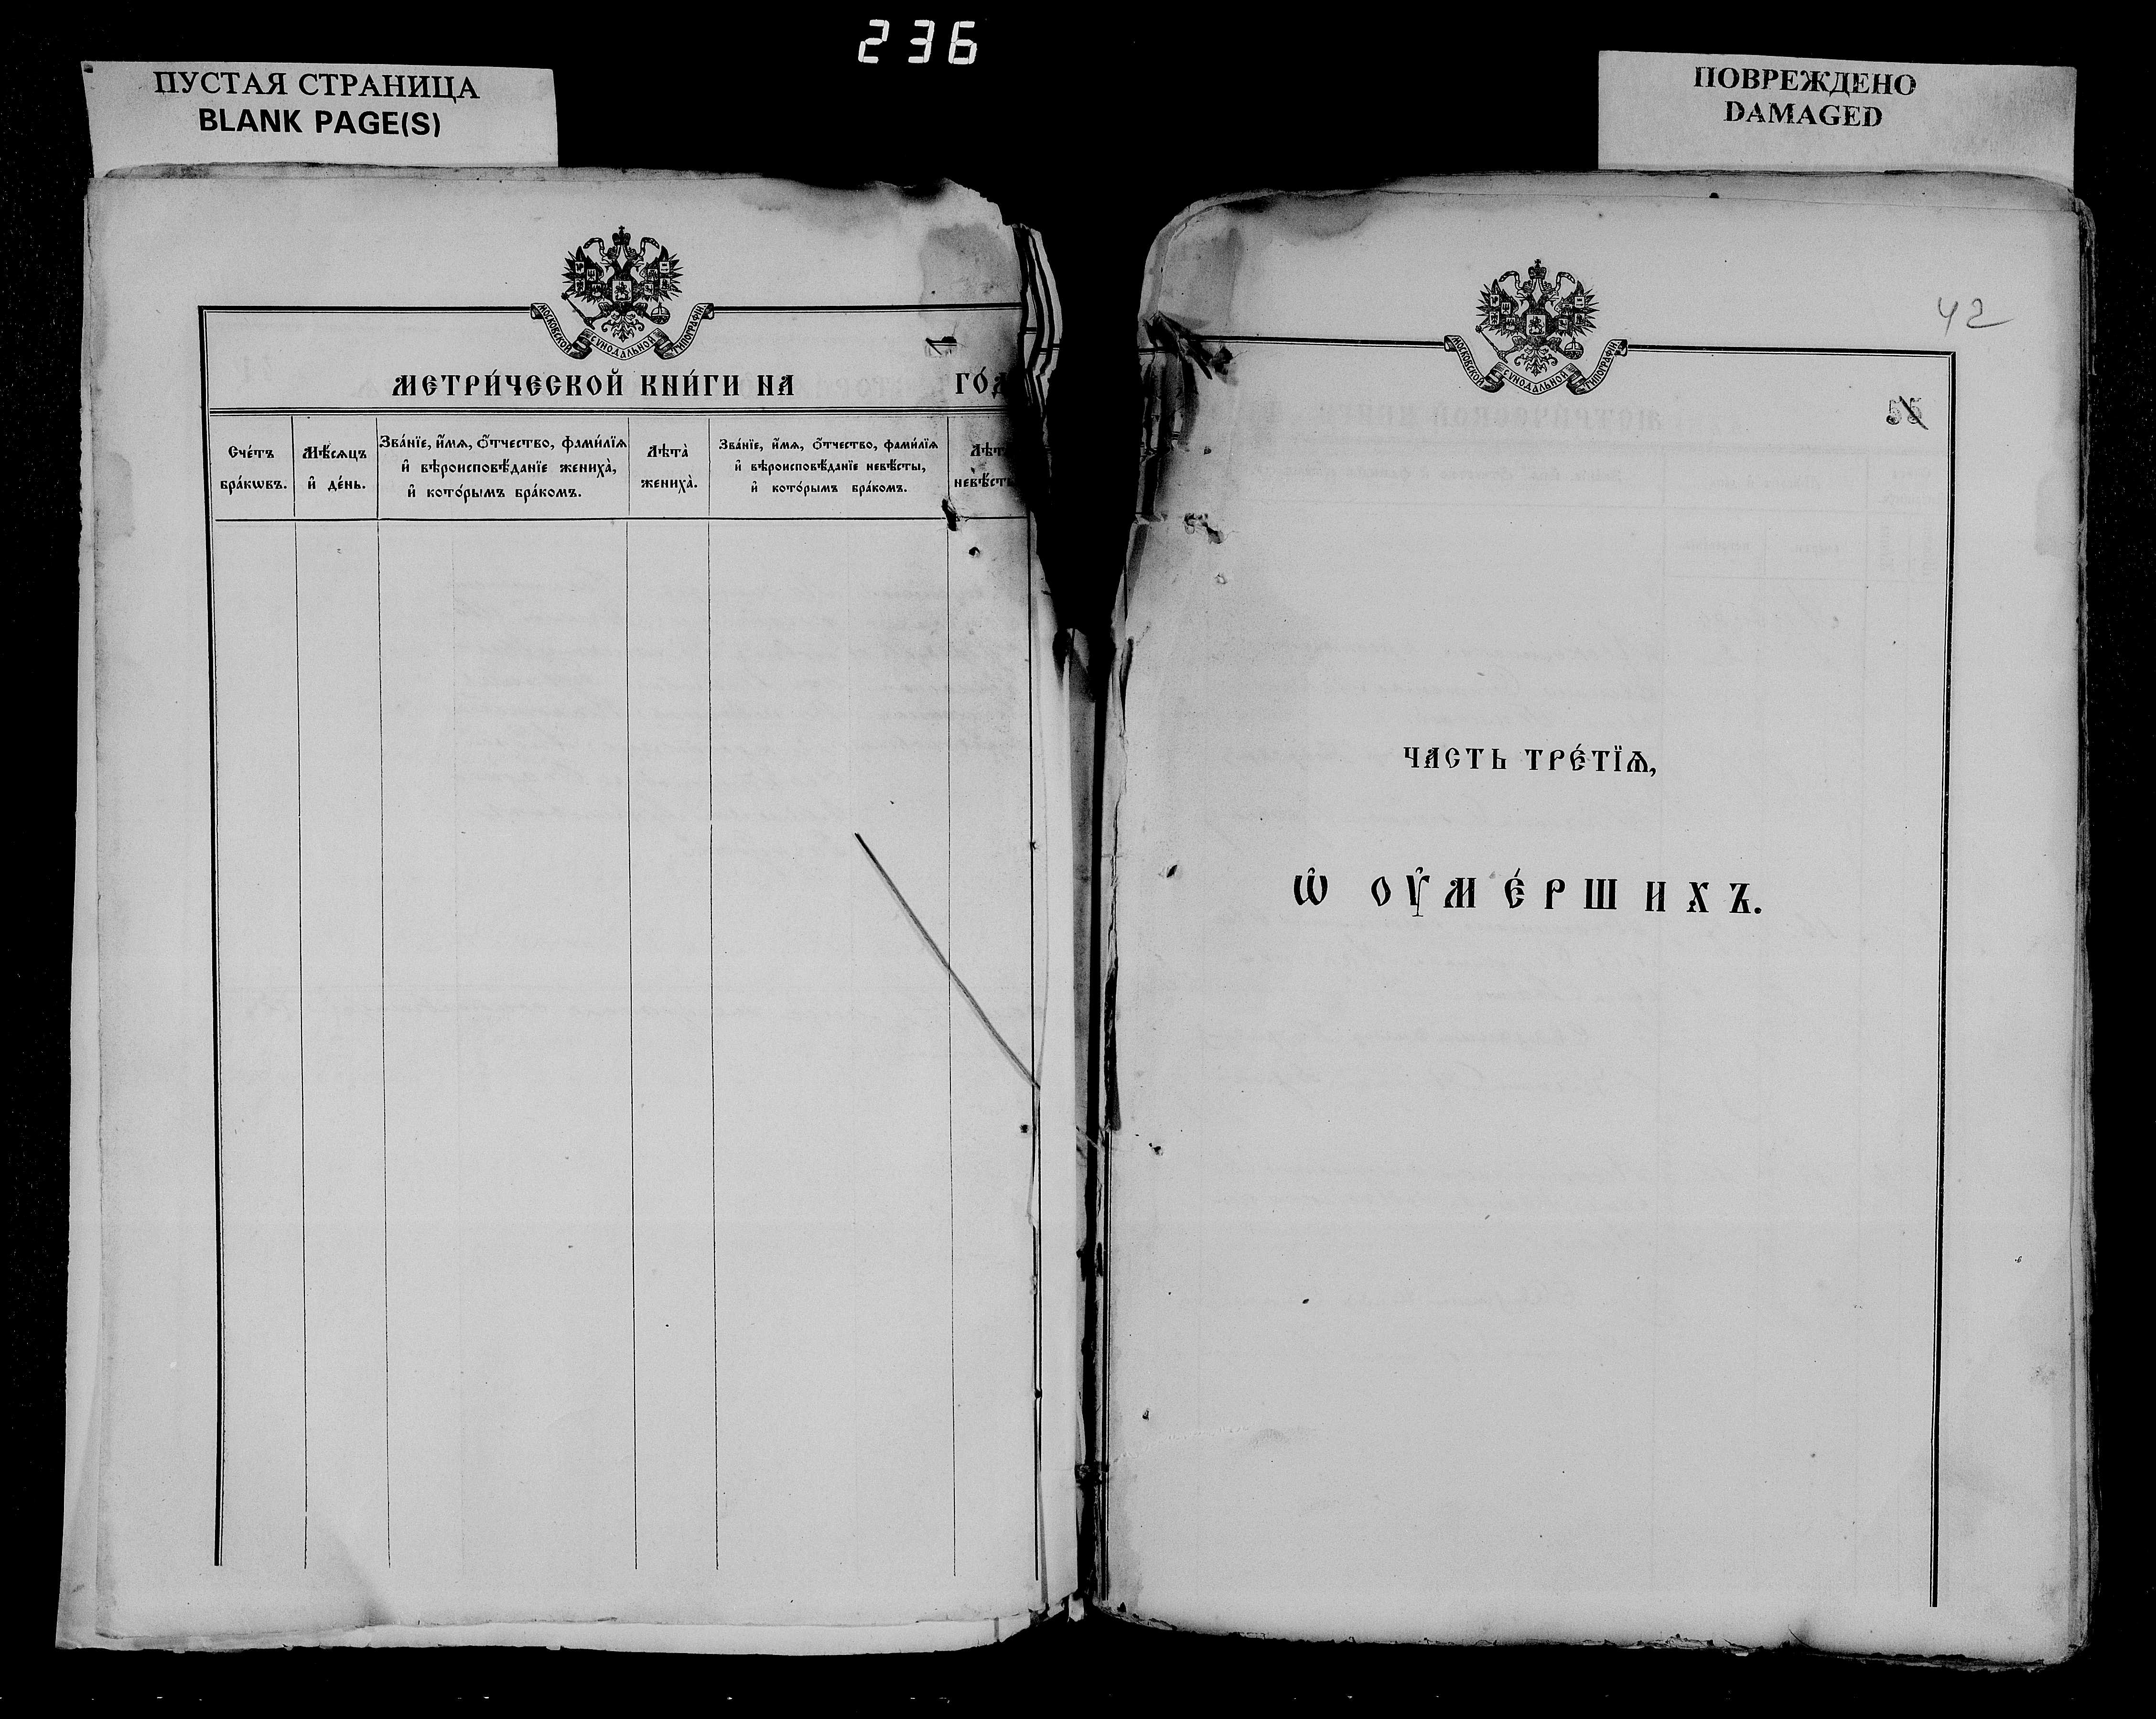 236
ПУСТАЯ СТРАНИЦА
BLANK PAGE(S)
ПОВРЕЖДЕНО
DAMAGED
МОСКОВСКОЙ СѴНОДАЛЬНОЙ ТИПОГРАФІИ
МЕТРИ́ЧЕСКОЙ КНИ́ГИ НА ГО́Д
Сче́тъ бра́кѡвъ.
Мѣ́сѧцъ и҆ де́нь.
Зва́нїе, и҆́мѧ, ѻ҆́тчество, фами́лїѧ и҆ вѣроисповѣ́данїе жениха̀, и҆ кото́рымъ бра́комъ.
Лѣта̀ жениха̀.
Зва́нїе, и҆́мѧ, ѻ҆́тчество, фами́лїѧ и҆ вѣроисповѣ́данїе невѣ́сты, и҆ кото́рымъ бра́комъ.
Лѣт невѣ́ст
МОСКОВСКОЙ СѴНОДАЛЬНОЙ ТИПОГРАФІИ
42
55
ЧАСТЬ ТРЕ́ТЇѦ,
Ѡ҆ ОУ҆МЕ́РШИХЪ.